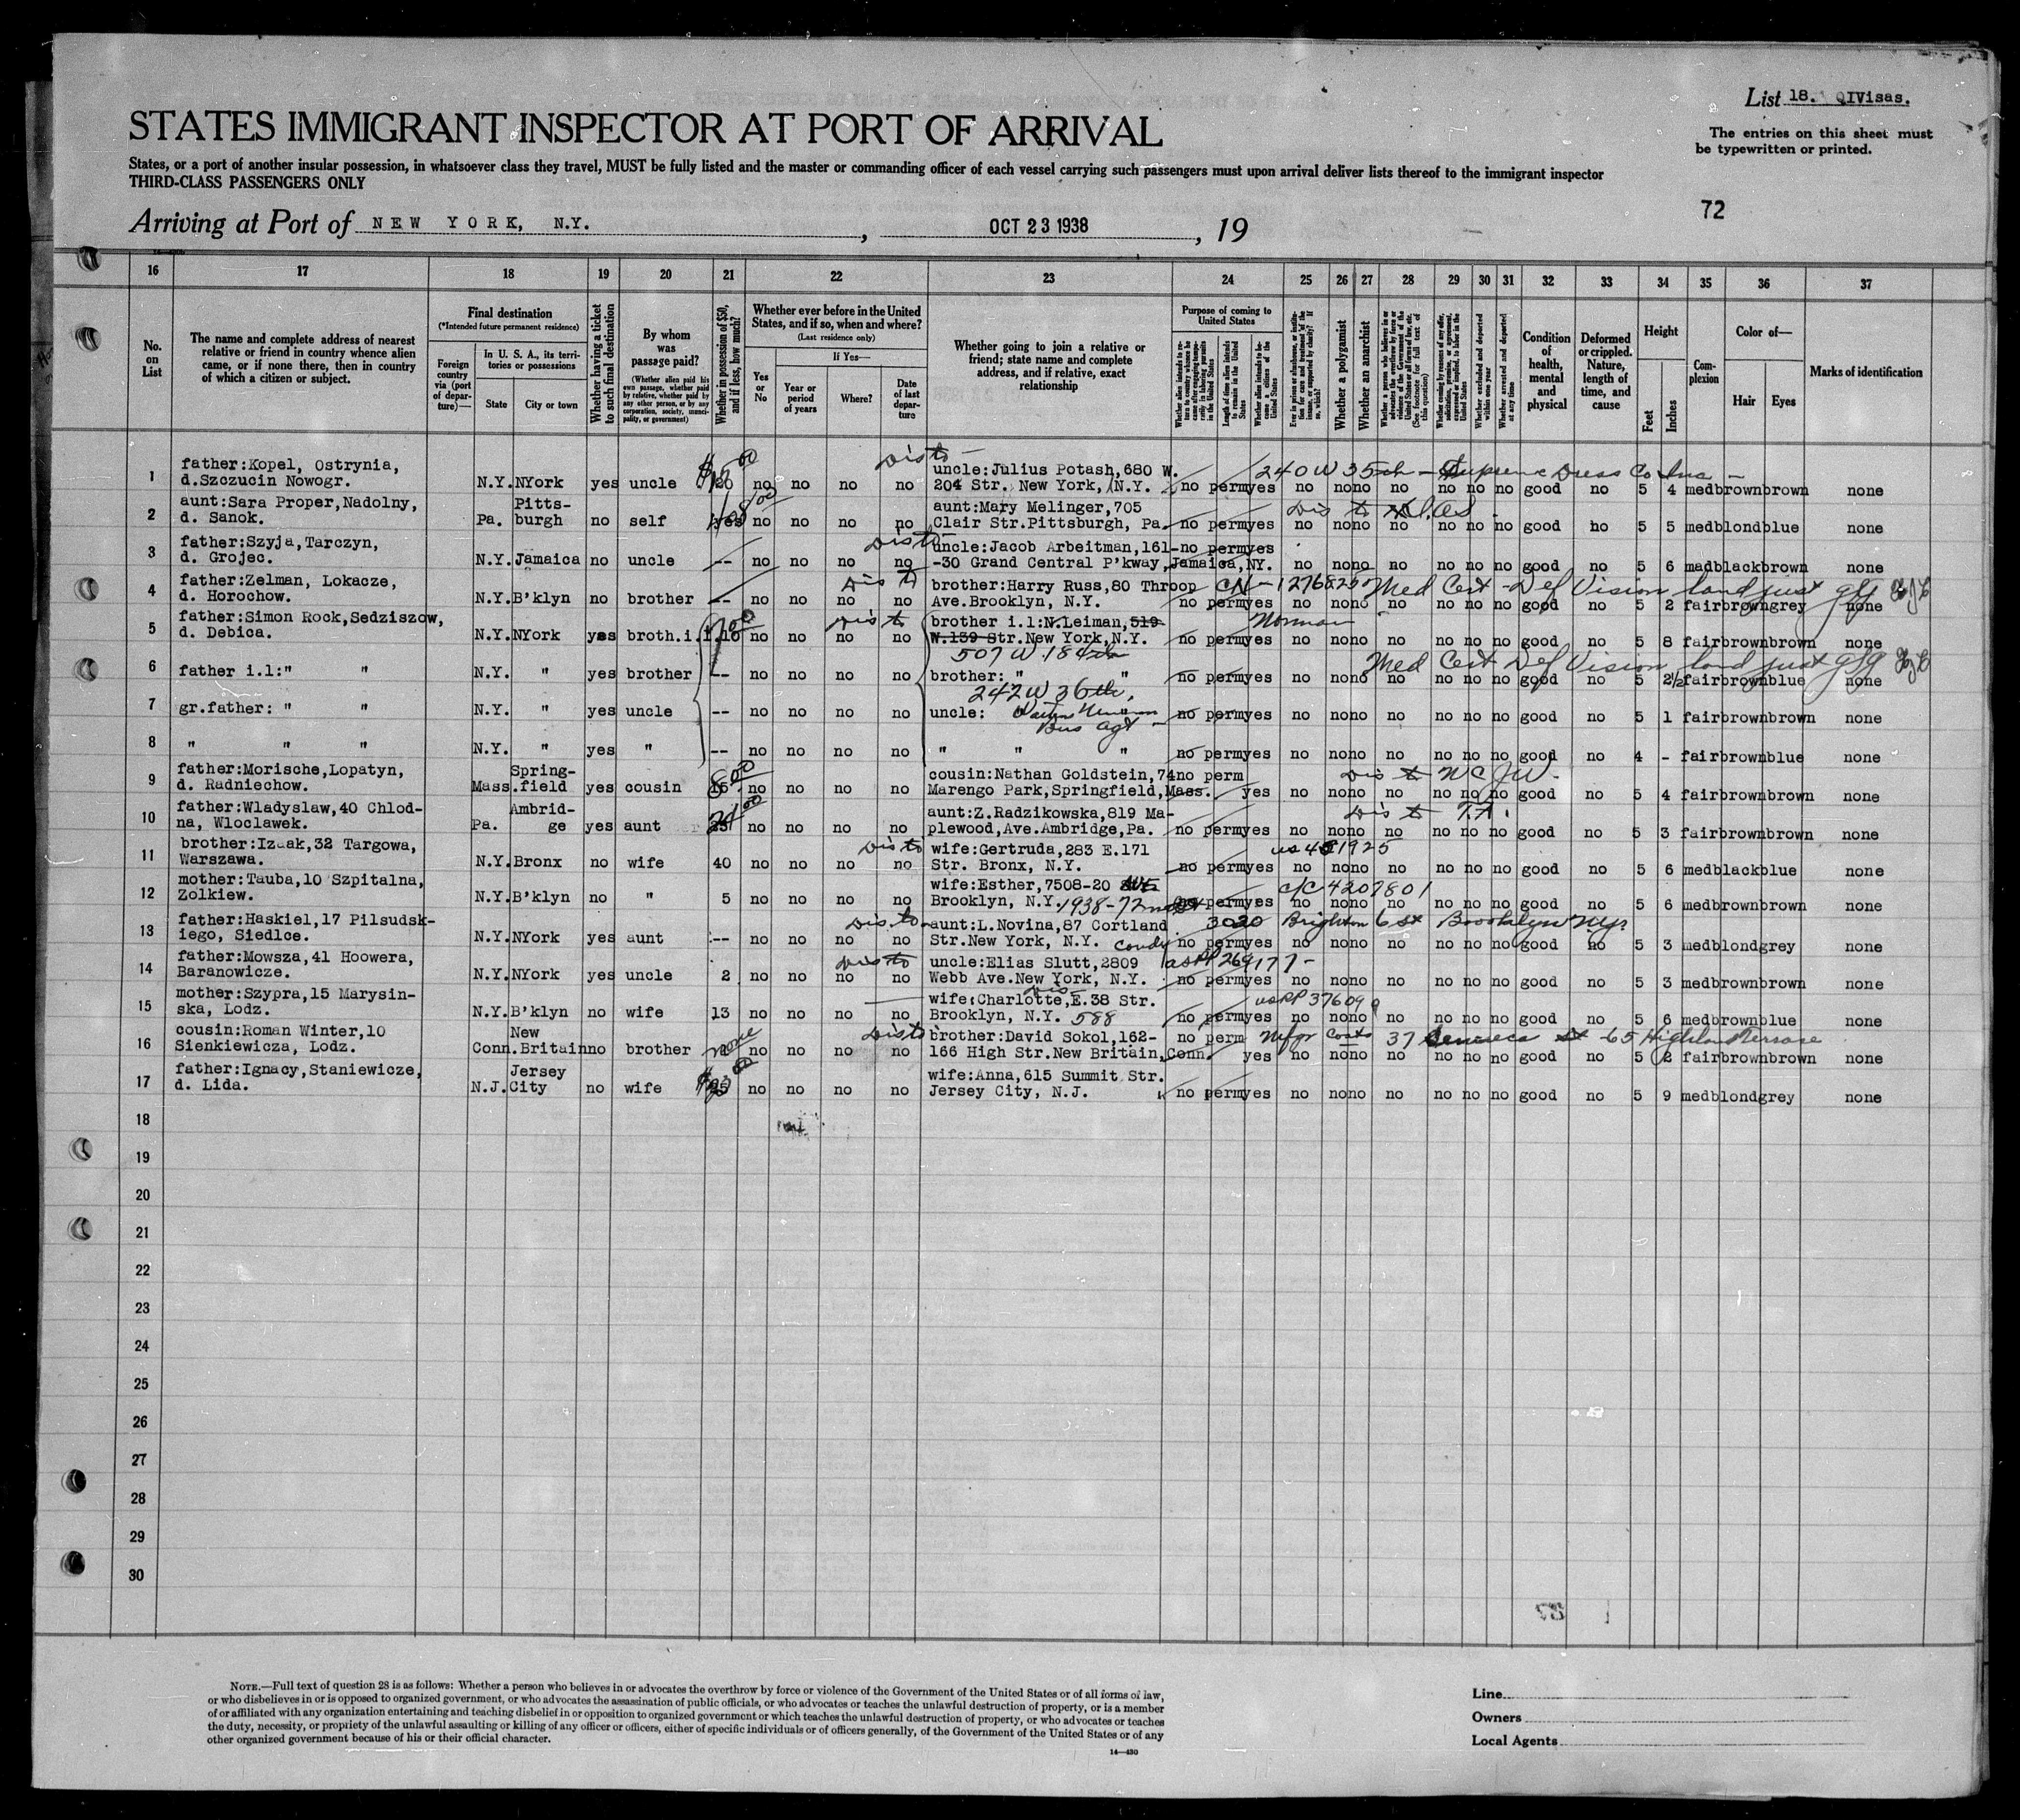 List 18. QIVisas.
STATES IMMIGRANT INSPECTOR AT PORT OF ARRIVAL
The entries on this sheet must
be typewritten or printed.
States, or a port of another insular possession, in whatsoever class they travel, MUST be fully listed and the master or commanding officer of each vessel carrying such passengers must upon arrival deliver lists thereof to the immigrant inspector
THIRD-CLASS PASSENGERS ONLY
72
Arriving at Port of NEW YORK, N.Y. , OCT 23 1938 , 19
16 17 18 19 20 21 22 23 24 25 26 27 28 29 30 31 32 33 34 35 36 37
No. on List
The name and complete address of nearest relative or friend in country whence alien came, or if none there, then in country of which a citizen or subject.
Final destination
(*Intended future permanent residence)
Foreign country via (port of departure)—
In U. S. A., its territories or possessions
State
City or town
Whether having a ticket to such final destination
By whom was passage paid?
(Whether alien paid his own passage, whether paid by relative, whether paid by any other person, or by any corporation, society, municipality, or government)
Whether in possession of $50, and if less, how much?
Whether ever before in the United States, and if so, when and where?
(Last residence only)
Yes or No
If Yes—
Year or period of years
Where?
Date of last departure
Whether going to join a relative or friend; state name and complete address, and if relative, exact relationship
Purpose of coming to United States
Whether a polygamist
Whether an anarchist
Condition of health, mental and physical
Deformed or crippled. Nature, length of time, and cause
Height
Feet
Inches
Complexion
Color of—
Hair
Eyes
Marks of identification
1 father:Kopel, Ostrynia, d.Szczucin Nowogr. N.Y. NYork yes uncle no no no no uncle:Julius Potash,680 W. 204 Str. New York, N.Y. no perm yes no no no no no no no good no 5 4 med brown brown none
Dis to 240 W 35th - Supreme Dress Co Inc -
2 aunt:Sara Proper,Nadolny, d. Sanok. Pa. Pittsburgh no self yes no no no no aunt:Mary Melinger,705 Clair Str.Pittsburgh, Pa. no perm yes no no no no no no no good no 5 5 med blond blue none
Dis to
3 father:Szyja,Tarczyn, d. Grojec. N.Y. Jamaica no uncle -- no no no no uncle:Jacob Arbeitman,161--30 Grand Central P'kway,Jamaica,NY. no perm yes no no no no no no no good no 5 6 mad black brown none
Dis to
4 father:Zelman, Lokacze, d. Horochow. N.Y. B'klyn no brother -- no no no no brother:Harry Russ,80 Throop Ave.Brooklyn, N.Y. no perm yes no no no no no no no good no 5 2 fair brown grey none
Dis to CN - 1276825 Med Cert - Def Vision land just
5 father:Simon Rock,Sedziszow, d. Debica. N.Y. NYork yes broth.i.l. 10 no no no no brother i.l:N.Leiman,519 W.139 Str.New York,N.Y. no perm yes no no no no no no no good no 5 8 fair brown brown none
Dis to Norman
507 W. 184th
6 father i.l:" " N.Y. " yes brother -- no no no no brother: " " no perm yes no no no no no no no good no 5 2½ fair brown blue none
Med Cert Def Vision land just
242 W 36th.
7 gr.father: " " N.Y. " yes uncle -- no no no no uncle: no perm yes no no no no no no no good no 5 1 fair brown brown none
Bus agt
8 " " " N.Y. " yes " -- no no no no " " " no perm yes no no no no no no no good no 4 - fair brown blue none
9 father:Morische,Lopatyn, d. Radniechow. Mass. Springfield yes cousin no no no no cousin:Nathan Goldstein,74 Marengo Park,Springfield,Mass. no perm yes no no no no no no no good no 5 4 fair brown brown none
Dis to NCJW.
10 father:Wladyslaw,40 Chlodna, Wloclawek. Pa. Ambridge yes aunt no no no no aunt:Z.Radzikowska,819 Maplewood,Ave.Ambridge,Pa. no perm yes no no no no no no no good no 5 3 fair brown brown none
Dis to T.A.
11 brother:Izaak,32 Targowa, Warszawa. N.Y. Bronx no wife 40 no no no no wife:Gertruda,283 E.171 Str. Bronx, N.Y. no perm yes no no no no no no no good no 5 6 med black blue none
Dis to
12 mother:Tauba,10 Szpitalna, Zolkiew. N.Y. B'klyn no " 5 no no no no wife:Esther,7508-20 Brooklyn, N.Y. perm yes no no no no no no no good no 5 6 med brown brown none
1938-72nd c/c 4207801
13 father:Haskiel,17 Pilsudskiego, Siedlce. N.Y. NYork yes aunt -- no no no no aunt:L.Novina,87 Cortland Str.New York, N.Y. no perm yes no no no no no no no good no 5 3 med blond grey none
Dis to candy 3020 Brighton 6 st Brooklyn NY
14 father:Mowsza,41 Hoowera, Baranowicze. N.Y. NYork yes uncle 2 no no no no uncle:Elias Slutt,2809 Webb Ave.New York, N.Y. no perm yes no no no no no no no good no 5 3 med brown brown none
Dis to
15 mother:Szypra,15 Marysinska, Lodz. N.Y. B'klyn no wife 13 no no no no wife:Charlotte,E.38 Str. Brooklyn, N.Y. no perm yes no no no no no no no good no 5 6 med brown blue none
Dis 588 usPP 37609
16 cousin:Roman Winter,10 Sienkiewicza, Lodz. Conn. New Britain no brother none no no no no brother:David Sokol,162-166 High Str.New Britain,Conn. no perm yes no no no no no no no good no 5 2 fair brown brown none
Dis to Mfgr Coats 37 Seneca St 65 Highland Terrace
17 father:Ignacy,Staniewicze, d. Lida. N.J. Jersey City no wife no no no no wife:Anna,615 Summit Str. Jersey City, N.J. no perm yes no no no no no no no good no 5 9 med blond grey none
18
19
20
21
22
23
24
25
26
27
28
29
30
NOTE.—Full text of question 28 is as follows: Whether a person who believes in or advocates the overthrow by force or violence of the Government of the United States or of all forms of law,
or who disbelieves in or is opposed to organized government, or who advocates the assassination of public officials, or who advocates or teaches the unlawful destruction of property, or is a member
of or affiliated with any organization entertaining and teaching disbelief in or opposition to organized government or which teaches the unlawful destruction of property, or who advocates or teaches
the duty, necessity, or propriety of the unlawful assaulting or killing of any officer or officers, either of specific individuals or of officers generally, of the Government of the United States or of any
other organized government because of his or their official character.
14—430
Line
Owners
Local Agents